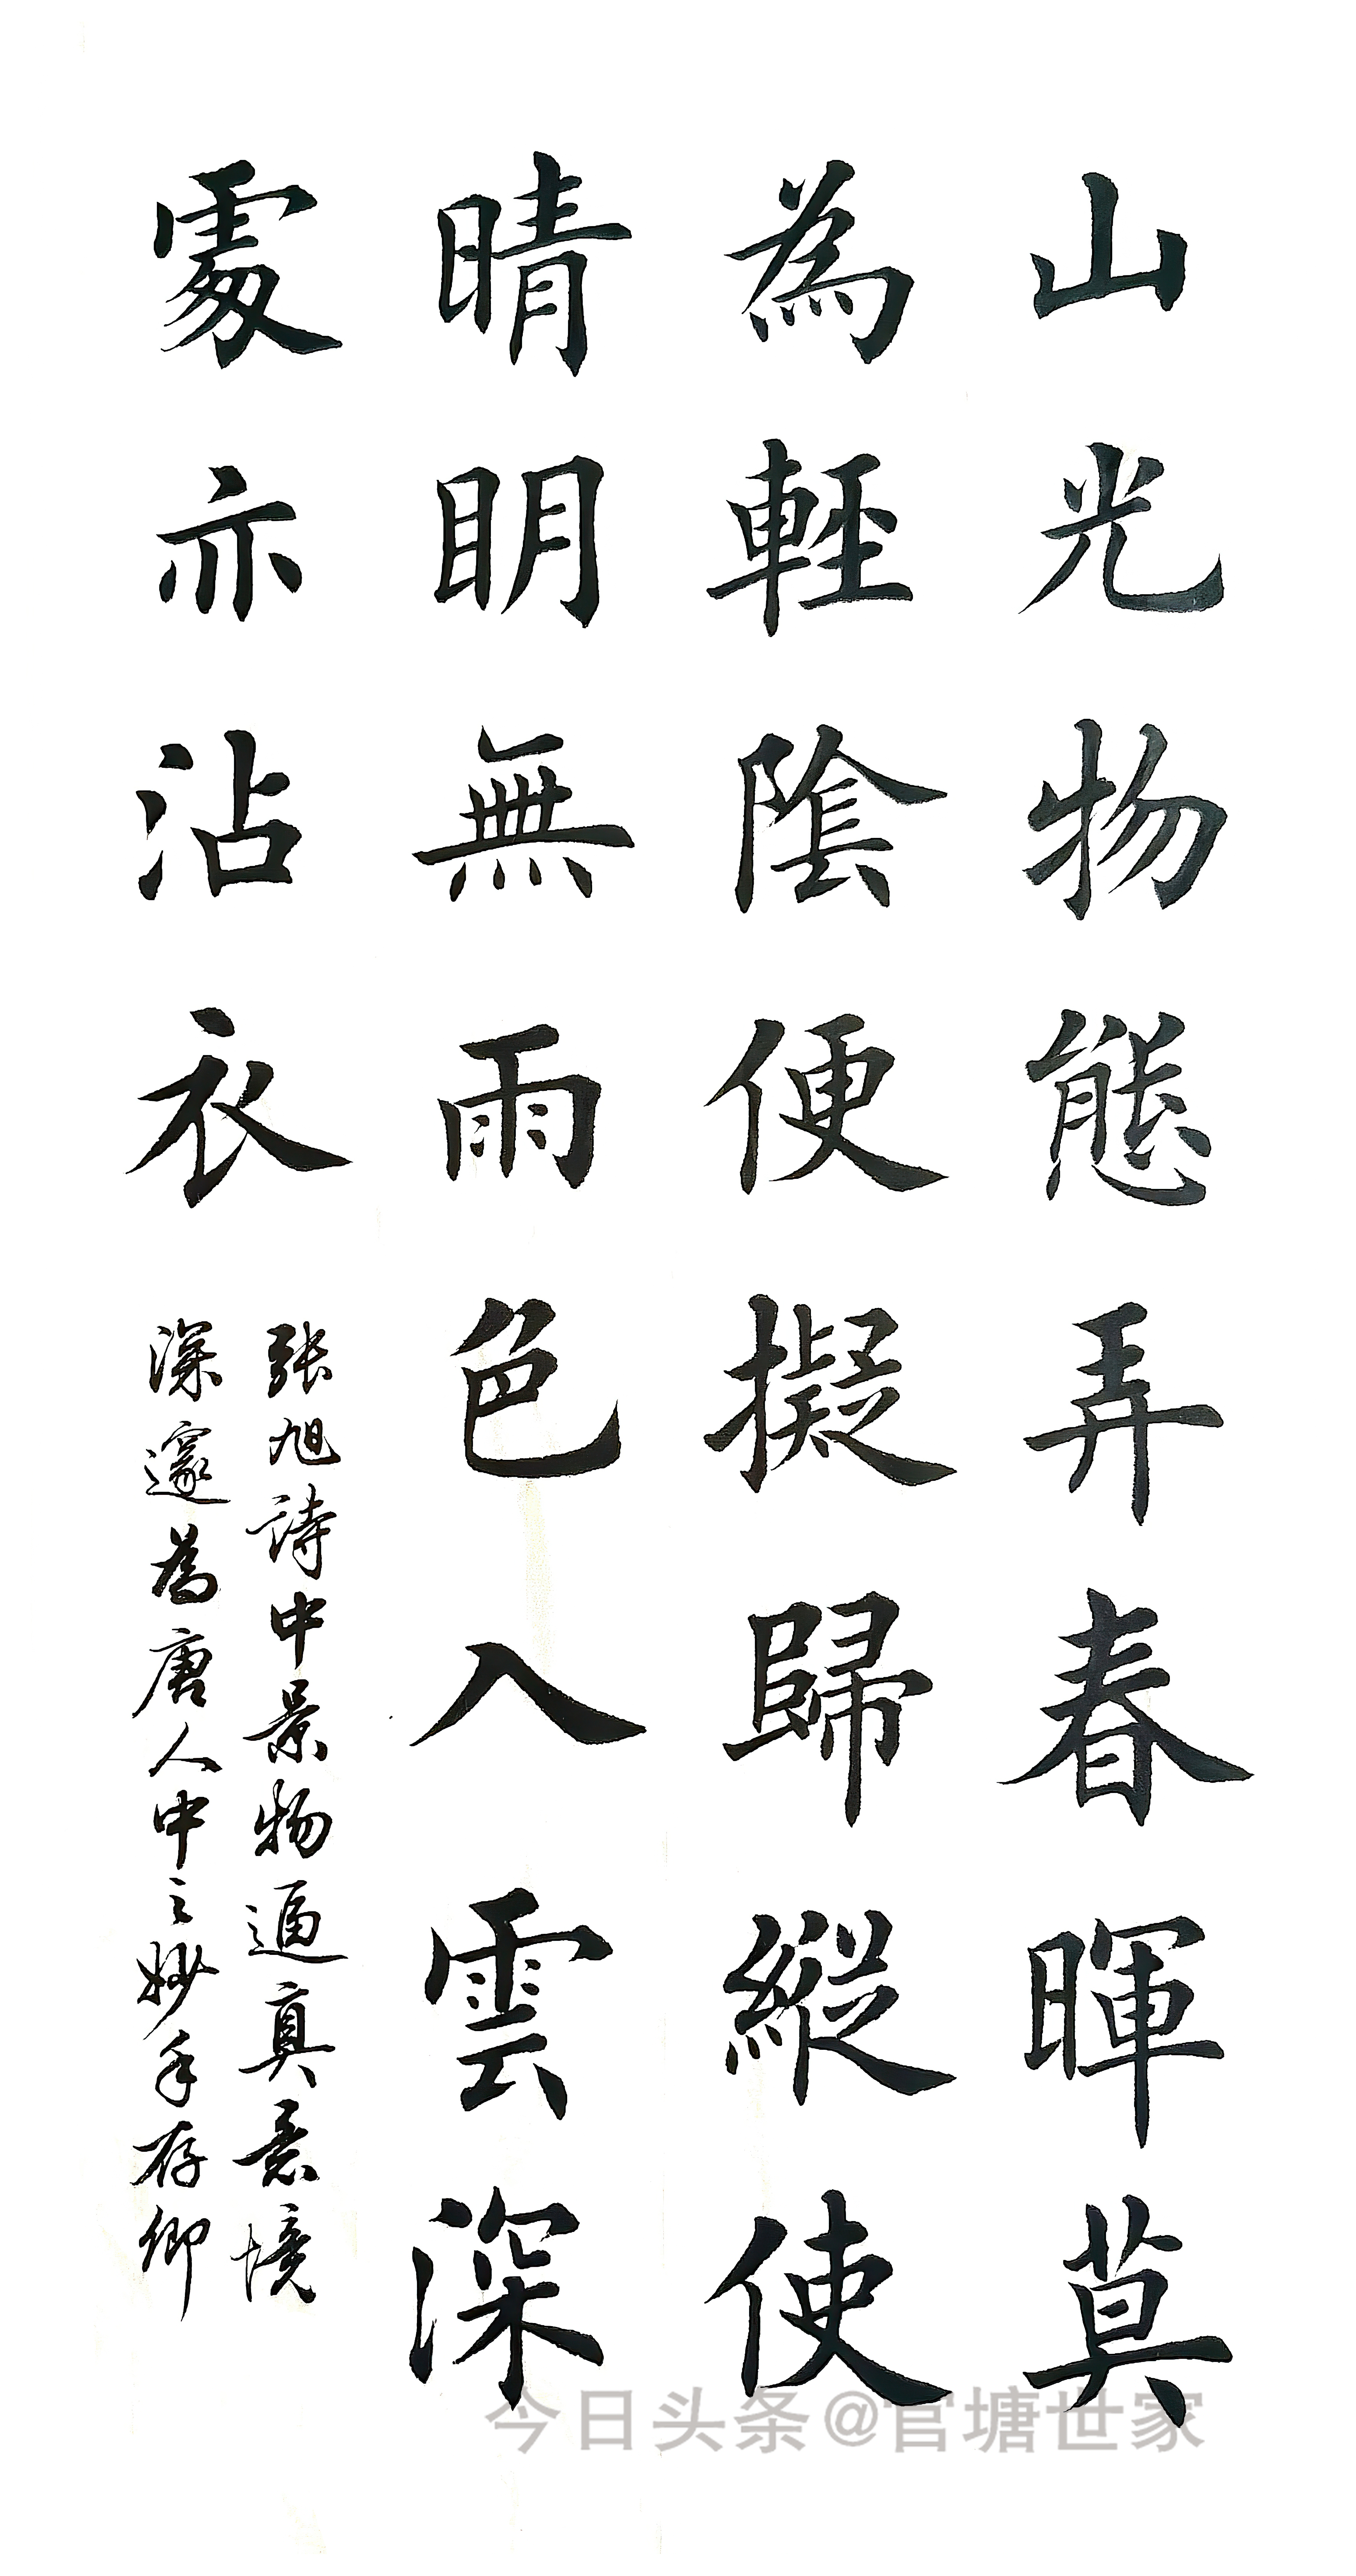 山光物態弄春暉莫
為輕陰便擬歸縱使
晴明無雨色入雲深
處亦沾衣
張旭詩中景物逼真意境
深邃為唐人中之妙手存卿
今日头条@官塘世家